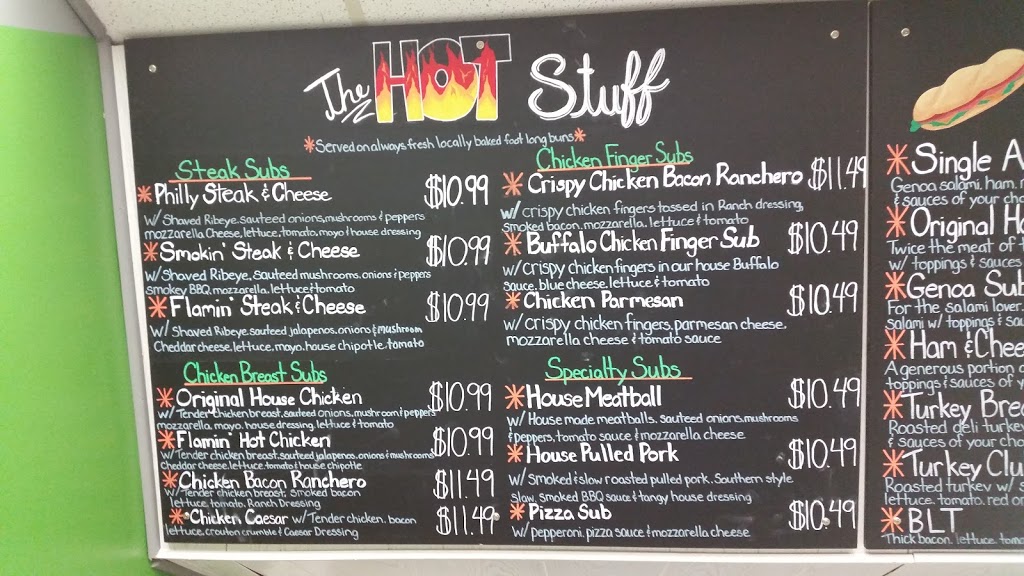 The HOT Stuff
*Served on always fresh locally baked foot long buns*
Steak Subs
*Philly Steak & Cheese $10.99
w/ Shaved Ribeye, sauteed onions, mushrooms & peppers
mozzarella Cheese, lettuce, tomato, mayo & house dressing
*Smokin' Steak & Cheese $10.99
w/ Shaved Ribeye, Sauteed mushrooms, onions & peppers
smokey BBQ, mozzarella, lettuce & tomato
*Flamin' Steak & Cheese $10.99
w/ Shaved Ribeye, sauteed jalapenos, onions & mushroom
Cheddar cheese, lettuce, mayo, house chipotle, tomato
Chicken Breast Subs
*Original House Chicken $10.99
w/ Tender chicken breast, sauteed onions, mushroom & peppers
mozzarella, mayo, house dressing, lettuce & tomato
*Flamin' Hot Chicken $10.99
w/ Tender chicken breast, sauteed jalapenos, onions & mushrooms
Cheddar cheese, lettuce, tomato & house chipotle
*Chicken Bacon Ranchero $11.49
w/ Tender chicken breast, smoked bacon
lettuce, tomato, Ranch Dressing
*Chicken Caesar w/ Tender chicken, bacon $11.49
lettuce, crouton crumble & Caesar Dressing
Chicken Finger Subs
*Crispy Chicken Bacon Ranchero $11.49
w/ crispy chicken fingers tossed in Ranch dressing,
smoked bacon, mozzarella, lettuce & tomato
*Buffalo Chicken Finger Sub $10.49
w/ Crispy chicken fingers in our house Buffalo
sauce, blue cheese, lettuce & tomato
*Chicken Parmesan $10.49
w/ crispy chicken fingers, parmesan cheese,
mozzarella cheese & tomato sauce
Specialty Subs
*House Meatball $10.49
w/ House made meatballs, sauteed onions, mushrooms
& peppers, tomato sauce & mozzarella cheese
*House Pulled Pork $10.49
w/ smoked & slow roasted pulled pork, Southern style
slaw, smoked BBQ sauce & tangy house dressing
*Pizza Sub $10.49
w/ pepperoni, pizza sauce & mozzarella cheese
*Single
Genoa salami, ham,
& sauces of your
*Original
Twice the meat of
w/ toppings & sauces
*Genoa Sub
For the salami lover.
Salami w/ toppings &
*Ham &
A generous portion
toppings & sauces of
*Turkey
Roasted deli turkey
& sauces of your
*Turkey
Roasted turkey w/
lettuce, tomato, red
*BLT
Thick bacon, lettuce,